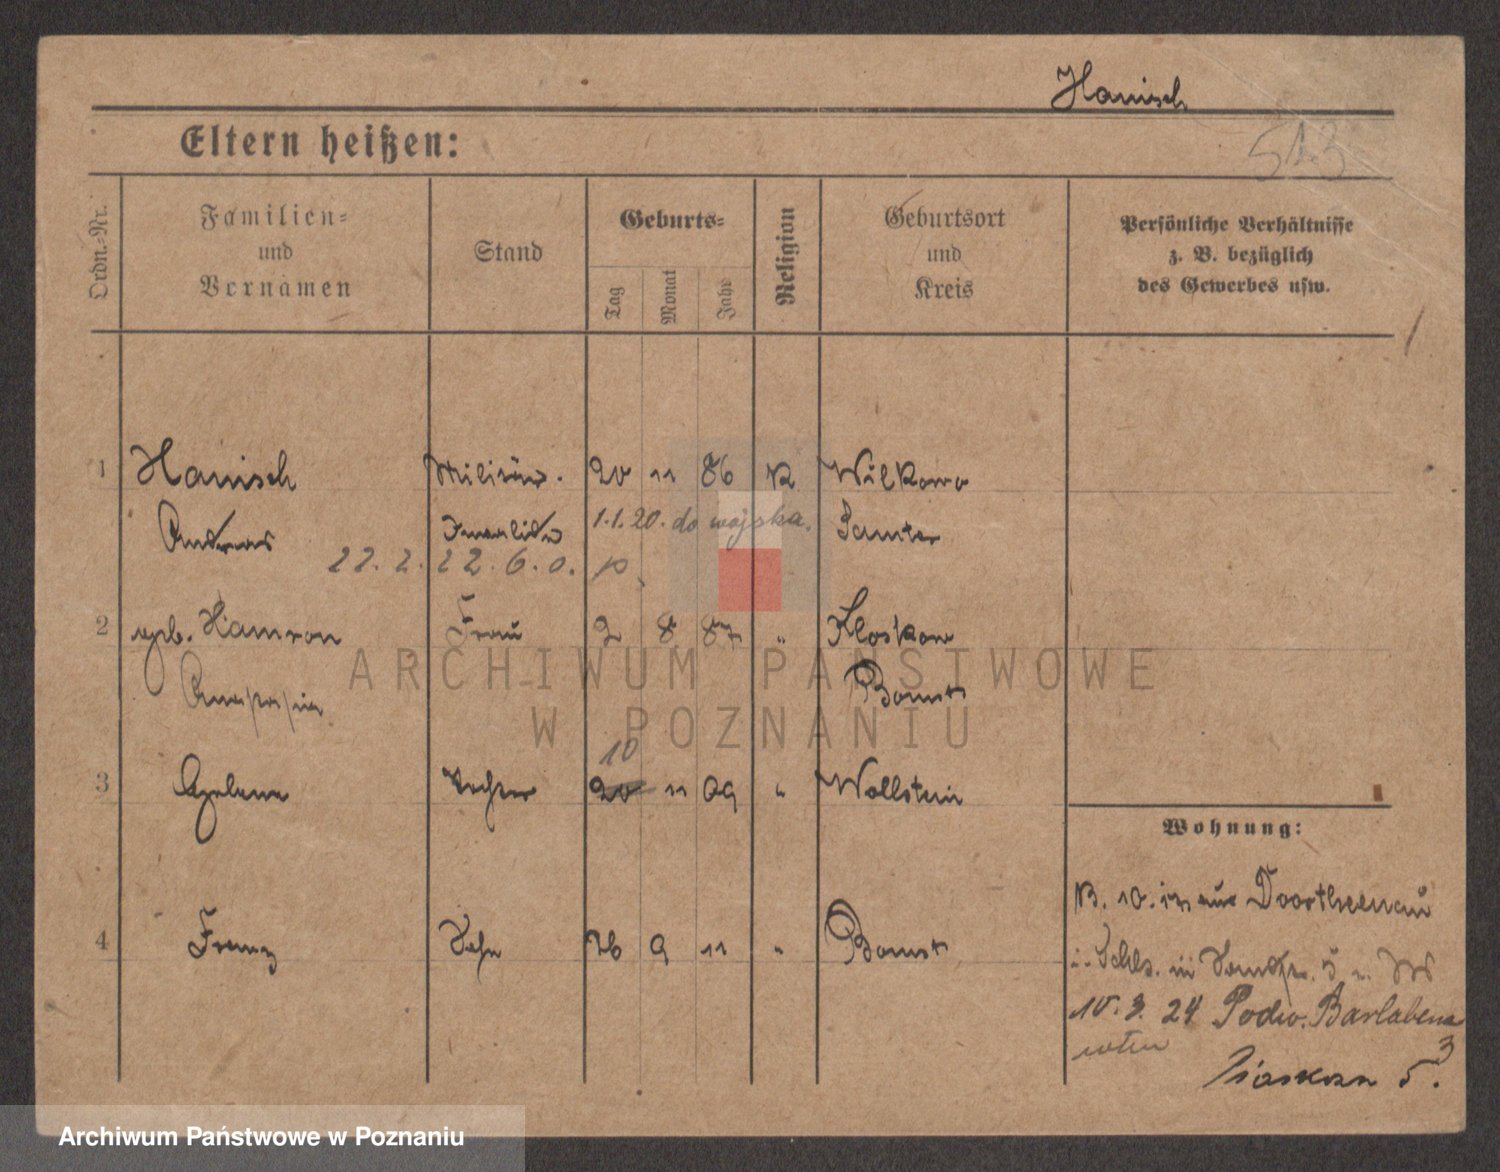 Hanisch
513
Eltern heißen:
Ordn.-Nr.
Familien-
und
Vornamen
Stand
Geburts-
Tag
Monat
Jahr
Religion
Geburtsort
und
Kreis
Persönliche Verhältnisse
z. B. bezüglich
des Gewerbes usw.
1 Hanisch Militär. 20 11 86 K Wilkowo
Andreas Invalide 1.1.20. do wojska. Samter
22. 2. 22. 6. 0. p.
2 geb. Hamron Frau 2 8 87 " Kloskow
Anastasia Bomst
10
3 Tochter 20 11 09 " Wollstein
Wohnung:
B. 10. 13 aus
4 Franz Sohn 26 9 11 " Bomst
i. Schls. in
10.3.24 Podw. Barlabena
3
5.
ARCHIWUM PAŃSTWOWE
W POZNANIU
Archiwum Państwowe w Poznaniu